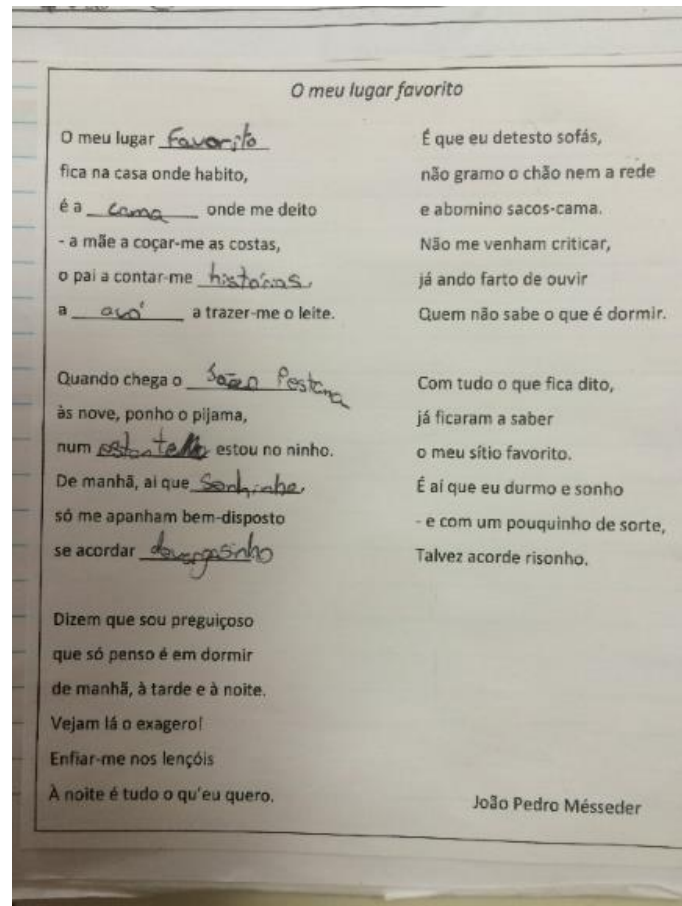 O meu lugar favorito
O meu lugar Favorito
fica na casa onde habito,
é a cama onde me deito
- a mãe a coçar-me as costas,
o pai a contar-me histórias,
a avó a trazer-me o leite.
Quando chega o João Pestana
às nove, ponho o pijama,
num estou no ninho.
De manhã, ai que
só me apanham bem-disposto
se acordar devagasinho
Dizem que sou preguiçoso
que só penso é em dormir
de manhã, à tarde e à noite.
Vejam lá o exagero!
Enfiar-me nos lençóis
À noite é tudo o qu'eu quero.
É que eu detesto sofás,
não gramo o chão nem a rede
e abomino sacos-cama.
Não me venham criticar,
já ando farto de ouvir
Quem não sabe o que é dormir.
Com tudo o que fica dito,
já ficaram a saber
o meu sítio favorito.
É aí que eu durmo e sonho
- e com um pouquinho de sorte,
Talvez acorde risonho.
João Pedro Mésseder